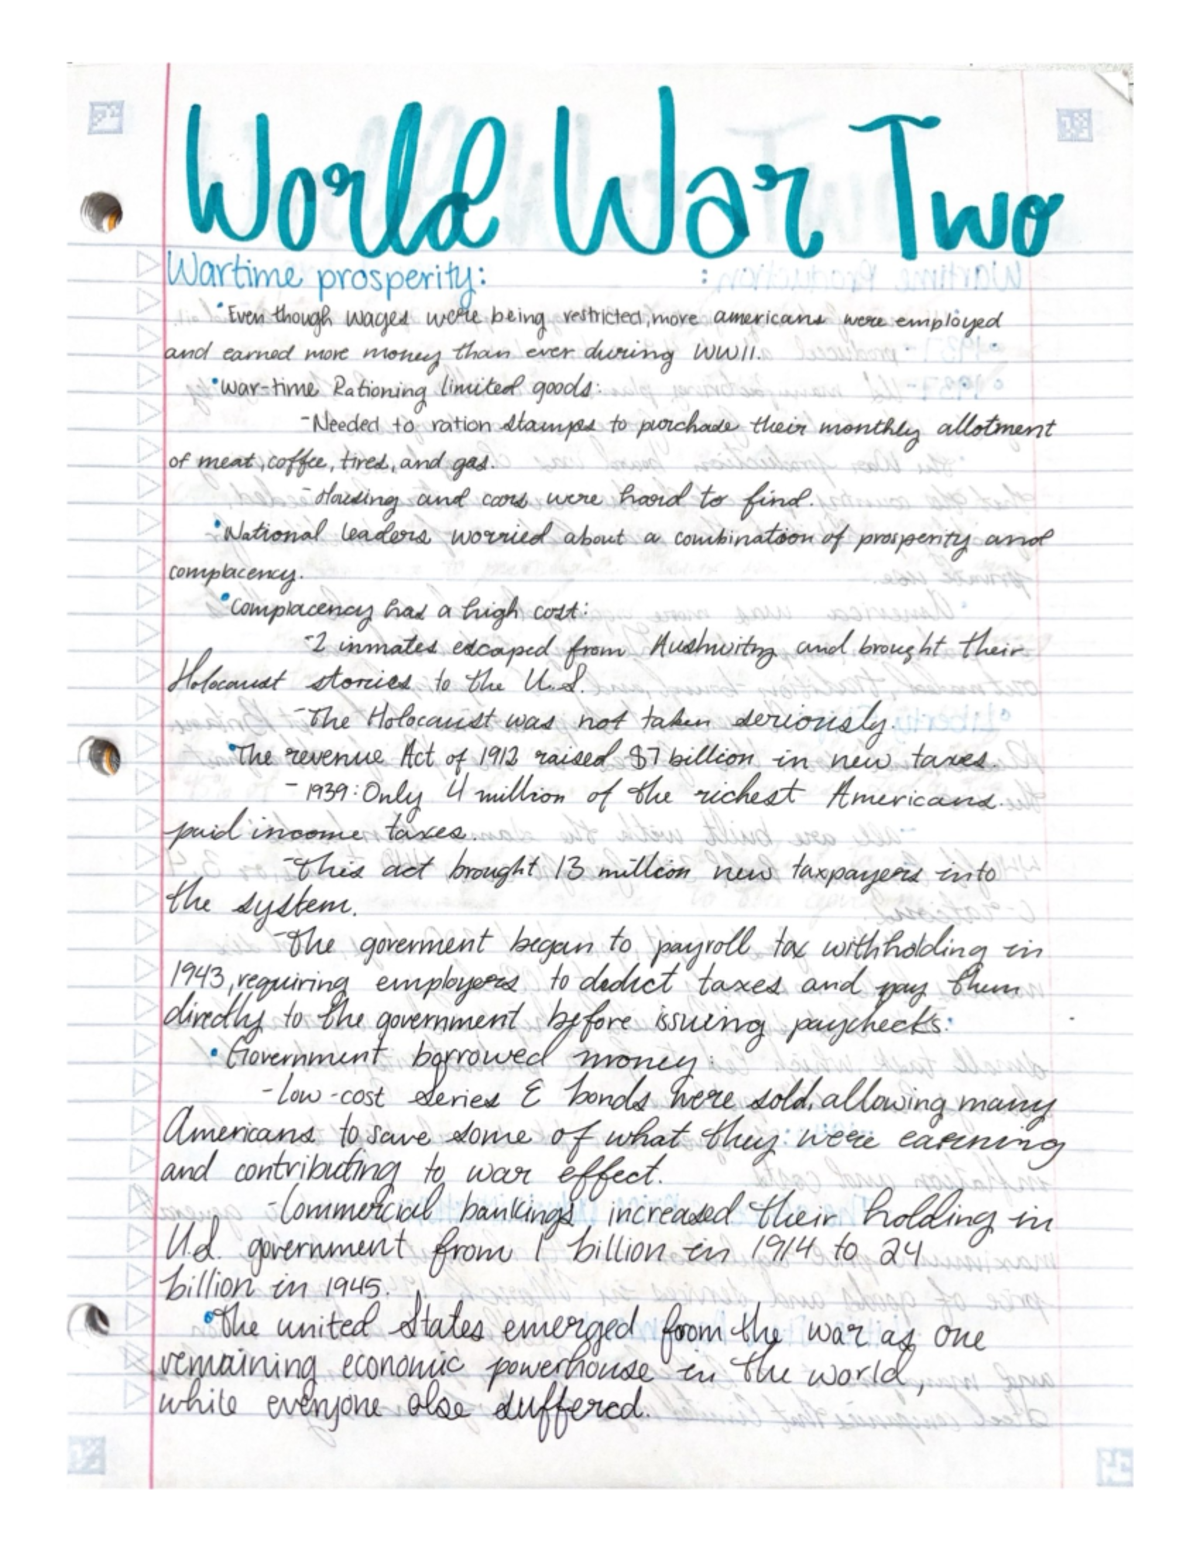 World War Two
Wartime prosperity:
•Even though wages were being restricted, more americans were employed
and earned more money than ever during WWII.
•War-time Rationing limited goods:
-Needed to ration stamps to purchase their monthly allotment
of meat, coffee, tires, and gas.
-Housing and cars were hard to find.
•National leaders worried about a combination of prosperity and
complacency.
•Complacency has a high cost:
-2 inmates escaped from Aushwitz and brought their
Holocaust stories to the U.S.
-The Holocaust was not taken seriously.
•The revenue Act of 1912 raised $7 billion in new taxes.
-1939: Only 4 million of the richest Americans
paid income taxes.
-This act brought 13 million new taxpayers into
the system.
-The goverment began to payroll tax withholding in
1943, requiring employers to deduct taxes and pay them
directly to the government before issuing paychecks.
•Government borrowed money:
-Low-cost Series E bonds were sold, allowing many
Americans to save some of what they were earning
and contributing to war effect.
-Commercial bankings increased their holding in
U.S. government from 1 billion in 1914 to 24
billion in 1945.
•The united States emerged from the war as one
remaining economic powerhouse in the world,
while everyone else suffered.